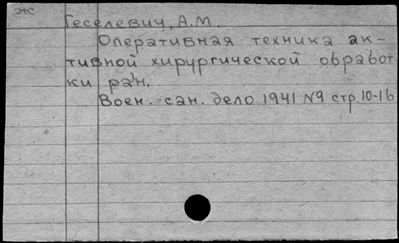 ЖС
Геселевич, А.М.
Оперативная техника ак-
тивной хирургической обработ
ки ран.
Воен. сан. дело 1941 №9 стр. 10-16